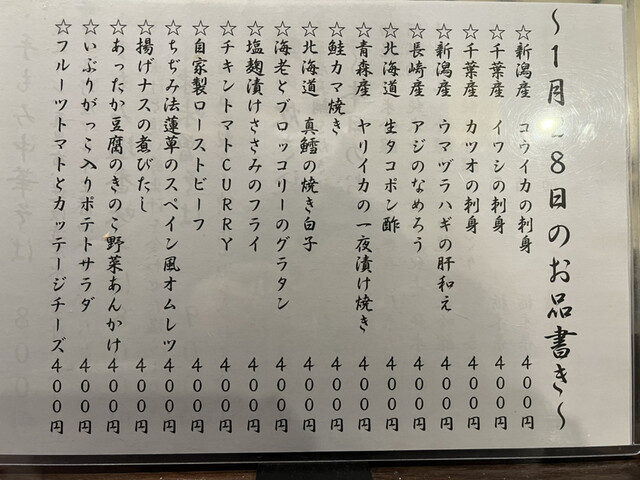 〜1月28日のお品書き〜
☆新潟産 コウイカの刺身 400円
☆千葉産 イワシの刺身 400円
☆千葉産 カツオの刺身 400円
☆新潟産 ウマヅラハギの肝和え 400円
☆長崎産 アジのなめろう 400円
☆北海道 生タコポン酢 400円
☆青森産 ヤリイカの一夜漬け焼き 400円
☆鮭カマ焼き 400円
☆北海道 真鱈の焼き白子 400円
☆海老とブロッコリーのグラタン 400円
☆塩麹漬けささみのフライ 400円
☆チキントマトCURRY 400円
☆自家製ローストビーフ 400円
☆ちぢみ法蓮草のスペイン風オムレツ 400円
☆揚げナスの煮びたし 400円
☆あったか豆腐のきのこ野菜あんかけ 400円
☆いぶりがっこ入りポテトサラダ 400円
☆フルーツトマトとカッテージチーズ 400円